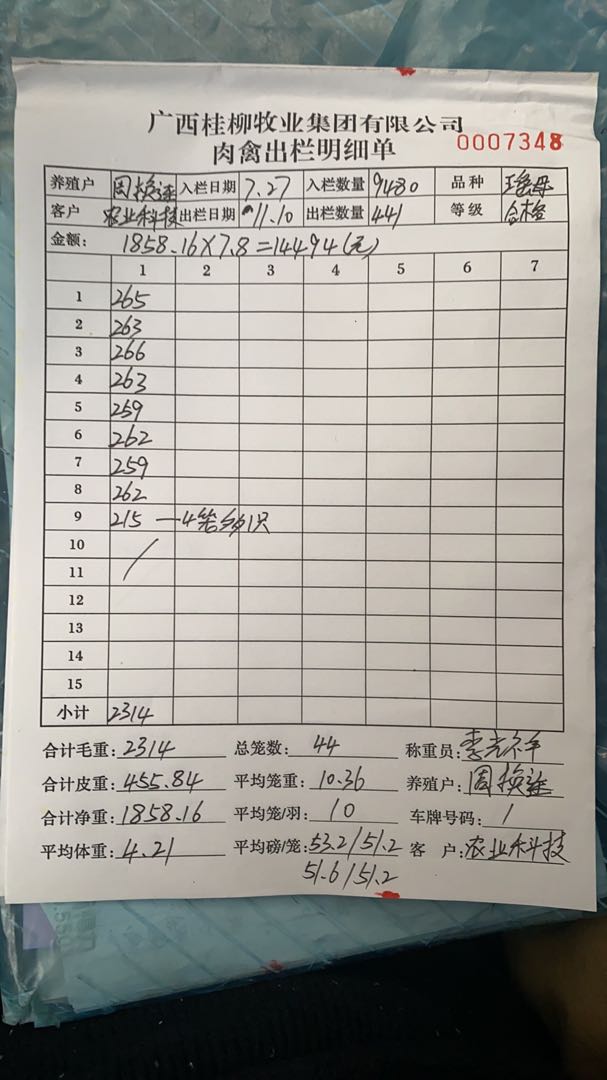 广西桂柳牧业集团有限公司
肉禽出栏明细单 0007348
养殖户 周换连 入栏日期 7.27 入栏数量 9480 品种 瑶母
客户 农业科技 出栏日期 11.10 出栏数量 441 等级 合格
金额: 1858.16×7.8=14494(元)
1 2 3 4 5 6 7
1 265
2 263
3 266
4 263
5 259
6 262
7 259
8 262
9 215 —4笼多1只
10
11
12
13
14
15
小计 2314
合计毛重: 2314 总笼数: 44 称重员:
合计皮重: 455.84 平均笼重: 10.36 养殖户: 周换连
合计净重: 1858.16 平均笼/羽: 10 车牌号码: /
平均体重: 4.21 平均磅/笼: 53.2/51.2 客户: 农业科技
51.6/51.2